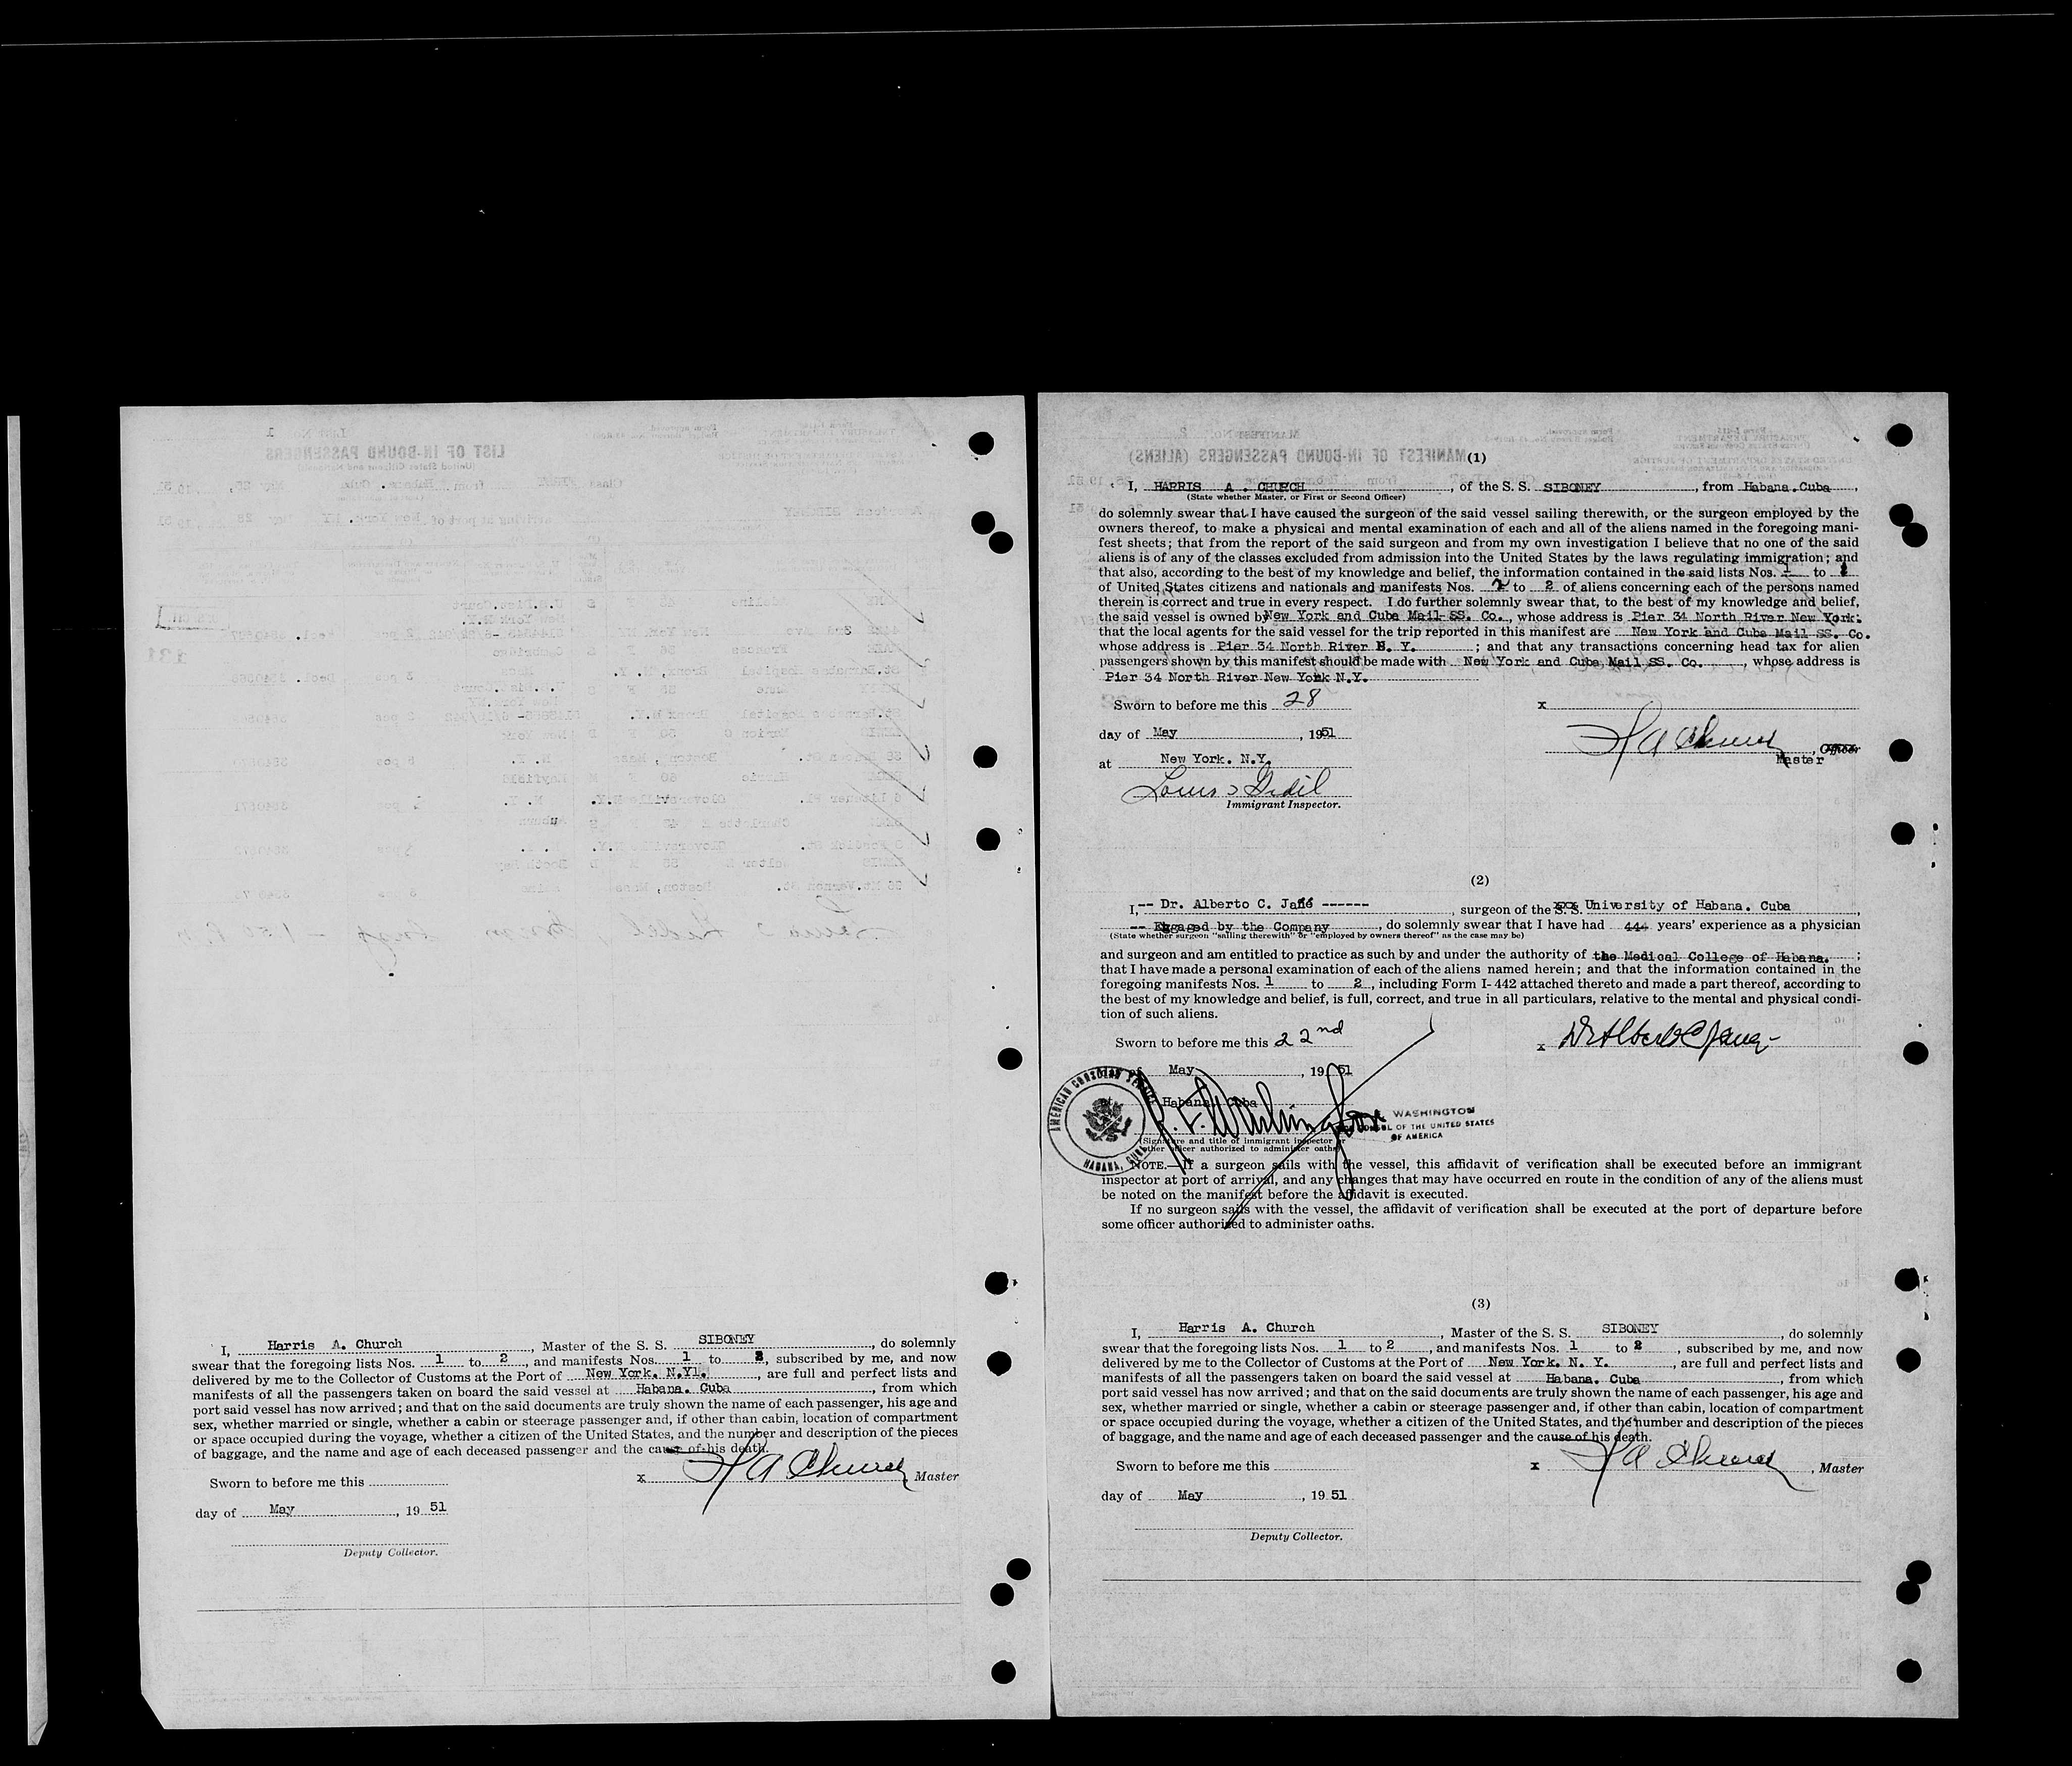 I, Harris A. Church, Master of the S. S. SIBONEY, do solemnly
swear that the foregoing lists Nos. 1 to 2, and manifests Nos. 1 to 2, subscribed by me, and now
delivered by me to the Collector of Customs at the Port of New York. N.Y1., are full and perfect lists and
manifests of all the passengers taken on board the said vessel at Habana. Cuba, from which
port said vessel has now arrived; and that on the said documents are truly shown the name of each passenger, his age and
sex, whether married or single, whether a cabin or steerage passenger and, if other than cabin, location of compartment
or space occupied during the voyage, whether a citizen of the United States, and the number and description of the pieces
of baggage, and the name and age of each deceased passenger and the cause of his death.
Sworn to before me this
x H A Church Master
day of May, 19 51
Deputy Collector.
(1)
I, HARRIS A. CHURCH, of the S. S. SIBONEY, from Habana.Cuba,
(State whether Master, or First or Second Officer)
do solemnly swear that I have caused the surgeon of the said vessel sailing therewith, or the surgeon employed by the
owners thereof, to make a physical and mental examination of each and all of the aliens named in the foregoing mani-
fest sheets; that from the report of the said surgeon and from my own investigation I believe that no one of the said
aliens is of any of the classes excluded from admission into the United States by the laws regulating immigration; and
that also, according to the best of my knowledge and belief, the information contained in the said lists Nos. 1 to
of United States citizens and nationals and manifests Nos. 2 to 2 of aliens concerning each of the persons named
therein is correct and true in every respect. I do further solemnly swear that, to the best of my knowledge and belief,
the said vessel is owned by New York and Cuba Mail SS. Co., whose address is Pier 34 North River New York;
that the local agents for the said vessel for the trip reported in this manifest are New York and Cuba Mail SS. Co.
whose address is Pier 34 North River N. Y.; and that any transactions concerning head tax for alien
passengers shown by this manifest should be made with New York and Cuba Mail SS. Co., whose address is
Pier 34 North River New York N.Y.
Sworn to before me this 28
x
day of May, 1951
H A Church, Officer
Master
at New York. N.Y.
Louis Gidil
Immigrant Inspector.
(2)
I, -- Dr. Alberto C. Jané ------, surgeon of the S. S. University of Habana. Cuba,
-- Engaged by the Company, do solemnly swear that I have had 44 years' experience as a physician
(State whether surgeon "sailing therewith" or "employed by owners thereof" as the case may be)
and surgeon and am entitled to practice as such by and under the authority of the Medical College of Habana.;
that I have made a personal examination of each of the aliens named herein; and that the information contained in the
foregoing manifests Nos. 1 to 2, including Form I-442 attached thereto and made a part thereof, according to
the best of my knowledge and belief, is full, correct, and true in all particulars, relative to the mental and physical condi-
tion of such aliens.
Sworn to before me this 22nd
x Dr Alberto C Jane
of May, 19 51
Habana, Cuba
AMERICAN CONSULAR SERVICE
HABANA, CUBA
WASHINGTON
CONSUL OF THE UNITED STATES
OF AMERICA
(Signature and title of immigrant inspector or
other officer authorized to administer oaths)
NOTE.—If a surgeon sails with the vessel, this affidavit of verification shall be executed before an immigrant
inspector at port of arrival, and any changes that may have occurred en route in the condition of any of the aliens must
be noted on the manifest before the affidavit is executed.
If no surgeon sails with the vessel, the affidavit of verification shall be executed at the port of departure before
some officer authorized to administer oaths.
(3)
I, Harris A. Church, Master of the S. S. SIBONEY, do solemnly
swear that the foregoing lists Nos. 1 to 2, and manifests Nos. 1 to 2, subscribed by me, and now
delivered by me to the Collector of Customs at the Port of New York. N. Y., are full and perfect lists and
manifests of all the passengers taken on board the said vessel at Habana. Cuba, from which
port said vessel has now arrived; and that on the said documents are truly shown the name of each passenger, his age and
sex, whether married or single, whether a cabin or steerage passenger and, if other than cabin, location of compartment
or space occupied during the voyage, whether a citizen of the United States, and the number and description of the pieces
of baggage, and the name and age of each deceased passenger and the cause of his death.
Sworn to before me this
x H A Church, Master
day of May, 19 51
Deputy Collector.